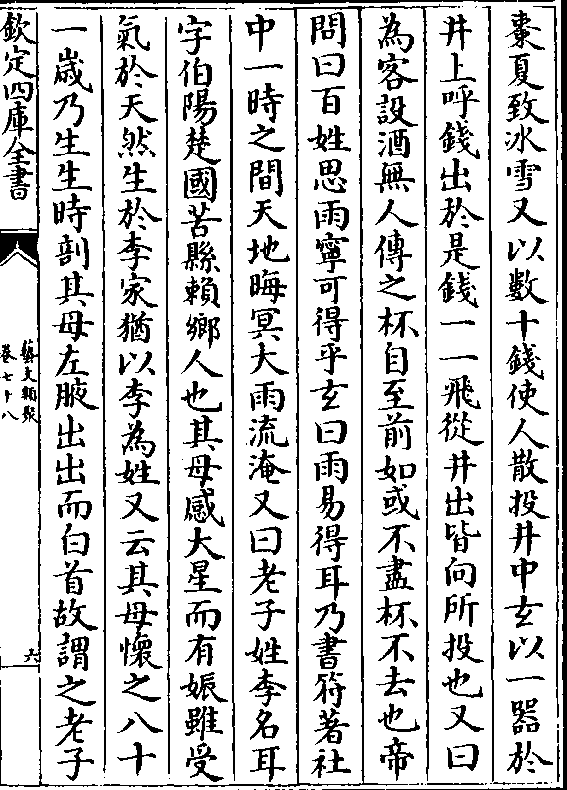 棗夏致冰雪又以數十錢使人散投井中玄以一器於
井上呼錢出於是錢一一飛從井出皆向所投也又曰
為客設酒無人傳之杯自至前如或不盡杯不去也帝
問曰百姓思雨寧可得乎玄曰雨易得耳乃書符著社
中一時之間天地晦冥大雨流淹又曰老子姓李名耳
字伯陽楚國苦縣賴鄉人也其母感大星而有娠雖受
氣於天然生於李家猶以李為姓又云其母懷之八十
一歲乃生生時剖其母左腋出出而白首故謂之老子
欽定四庫全書
藝文類聚
卷七十八
六